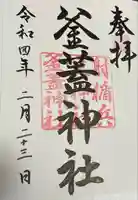 奉拝
釜蓋神社
令和四年二月二十三日
釜蓋神社